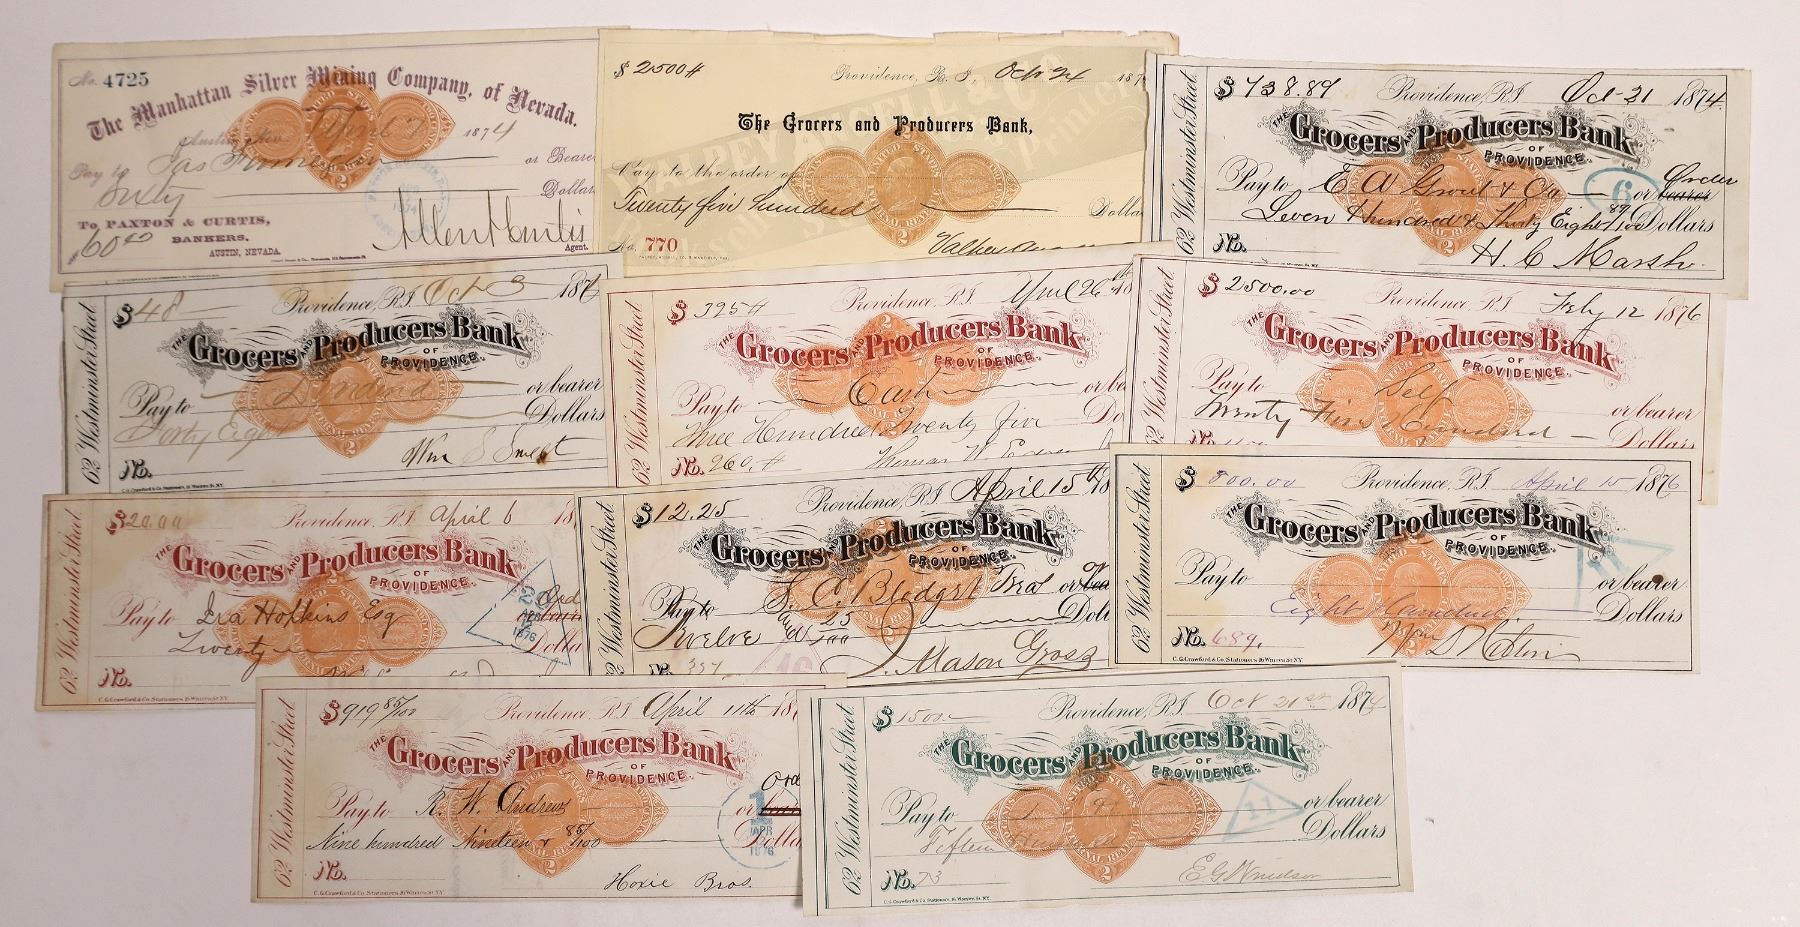 No. 4725
The Manhattan Silver Mining Company, of Nevada.
Austin, Nev. April 7 1874
Pay to Jas or Bearer
Sixty Dollars
To PAXTON & CURTIS,
BANKERS,
AUSTIN, NEVADA.
$60
Allen A Curtis
Agent.
$2500 Providence, R. I. Oct 24 187
The Grocers and Producers Bank,
Pay to the order of
Twenty five hundred Dollars
No. 770
62 Westminster Street
$738.89 Providence, R.I. Oct 21 1874
THE Grocers AND Producers Bank
OF PROVIDENCE.
Pay to E A Grout & Co or bearer Order
6
Seven Hundred & Thirty Eight 89/100 Dollars
No.
H. C Marsh
62 Westminster Street
$48 Providence, R.I. Oct 3 187
THE Grocers AND Producers Bank
OF PROVIDENCE.
Pay to Dividend or bearer
Forty Eight Dollars
No. Wm S Sweet
C. G. Crawford & Co. Stationers, 16 Warren St. N.Y.
62 Westminster Street
$325 Providence, R.I. April 26th 18
THE Grocers AND Producers Bank
OF PROVIDENCE.
Pay to Cash or be
Three Hundred Twenty five Do
No. 260.
62 Westminster Street
$2500.00 Providence, R.I. Feby 12 1876
THE Grocers AND Producers Bank
OF PROVIDENCE.
Pay to Self or bearer
Twenty Five Hundred Dollars
62 Westminster Street
$20.00 Providence, R.I. April 6 18
THE Grocers AND Producers Bank
OF PROVIDENCE.
Pay to Ira Hopkins Esq
Twenty Dolla
APR 1876
No.
C. G. Crawford & Co. Stationers, 16 Warren St. N.Y.
62 Westminster Street
$12.25 Providence, R.I. April 15th 18
THE Grocers AND Producers Bank
OF PROVIDENCE.
Pay to S. C. Blodget Treas or
Twelve and 25/100 Dol
No. 357
J. Mason Gross
62 Westminster Street
$800.00 Providence, R.I. April 15 1876
THE Grocers AND Producers Bank
OF PROVIDENCE.
Pay to or bearer
Eight Hundred Dollars
No. 689.
C. G. Crawford & Co. Stationers, 16 Warren St. N.Y.
62 Westminster Street
$919 85/100 Providence, R.I. April 11th 187
THE Grocers AND Producers Bank
OF PROVIDENCE.
Pay to R. W. Andrews or
Nine hundred Nineteen & 85/100 Dolla
1
APR
1876
No.
Hoxie Bros.
C. G. Crawford & Co. Stationers, 16 Warren St. N.Y.
62 Westminster Street
$1500 Providence, R.I. Oct 21st 1874
THE Grocers AND Producers Bank
OF PROVIDENCE.
Pay to or bearer
11
Fifteen Hundred Dollars
No. 73
C. G. Crawford & Co. Stationers, 16 Warren St. N.Y.